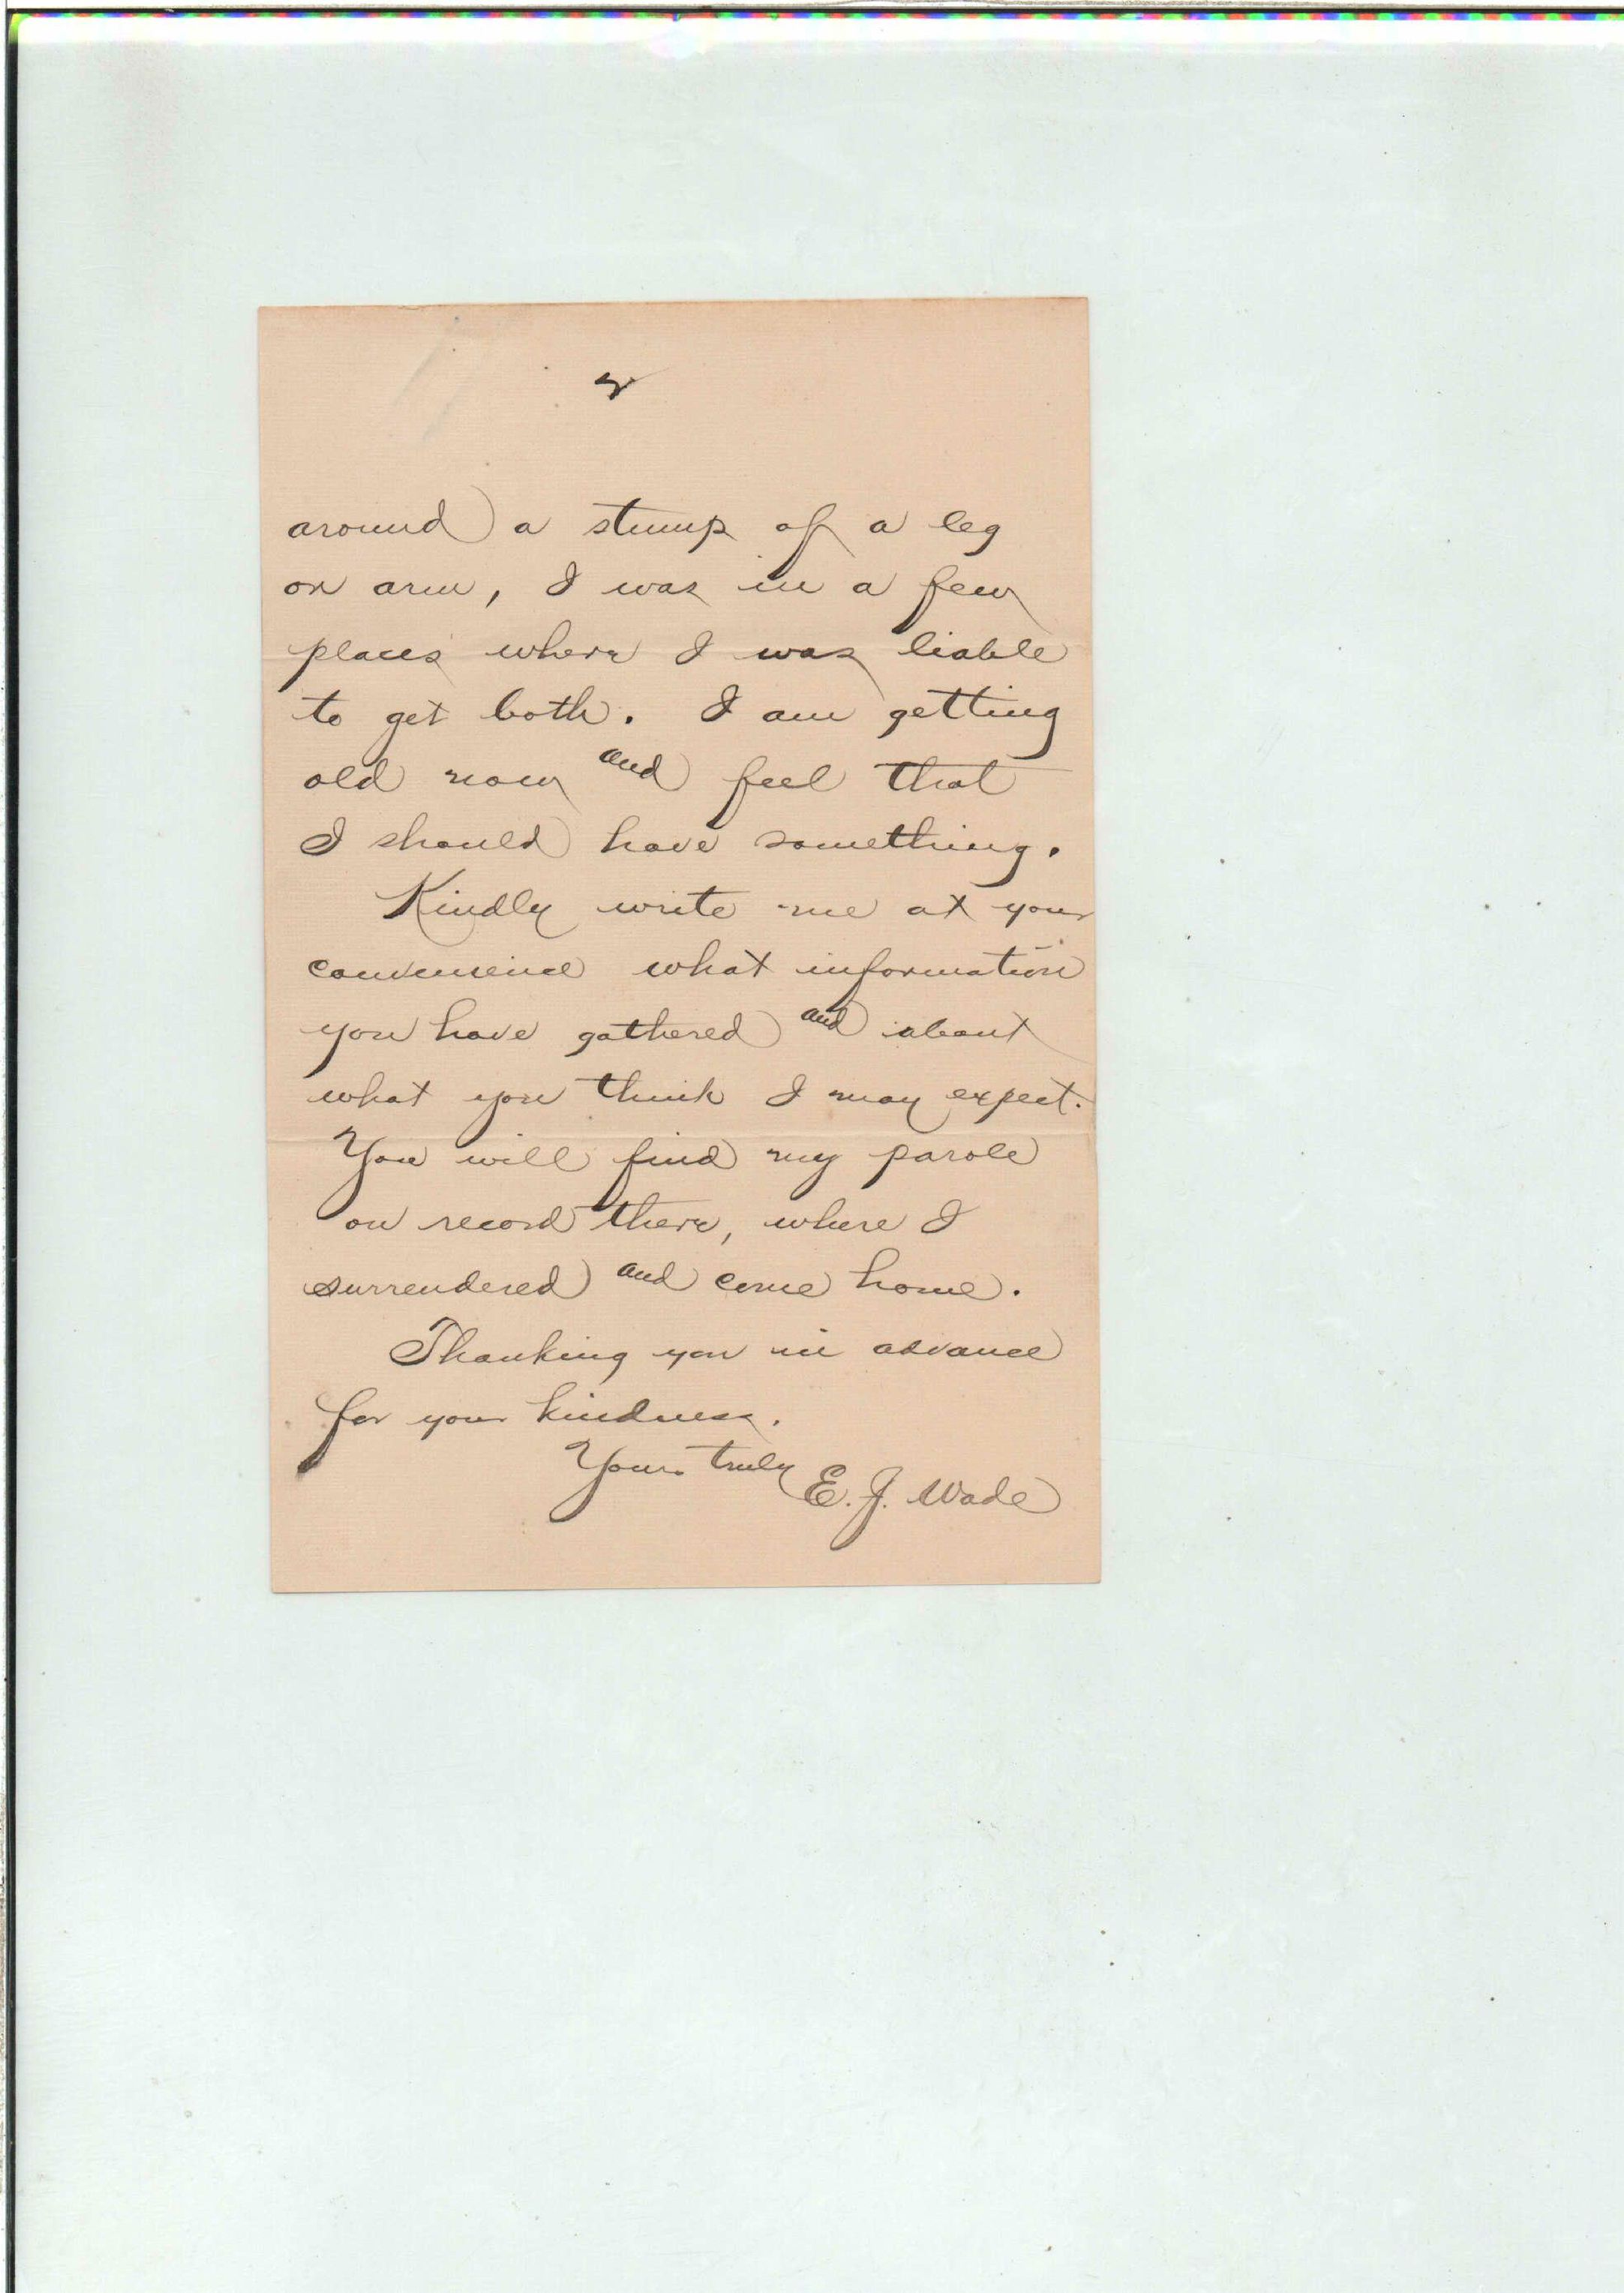 2
around a stump of a leg
or arm, I was in a few
places where I was liable
to get both. I am getting
old now and feel that
I should have something.
Kindly write me at your
convenience what information
you have gathered and about
what you think I may expect.
You will find my parole
on record there, where I
surrendered and come home.
Thanking you in advance
for your kindness.
Yours truly E. J. Wade